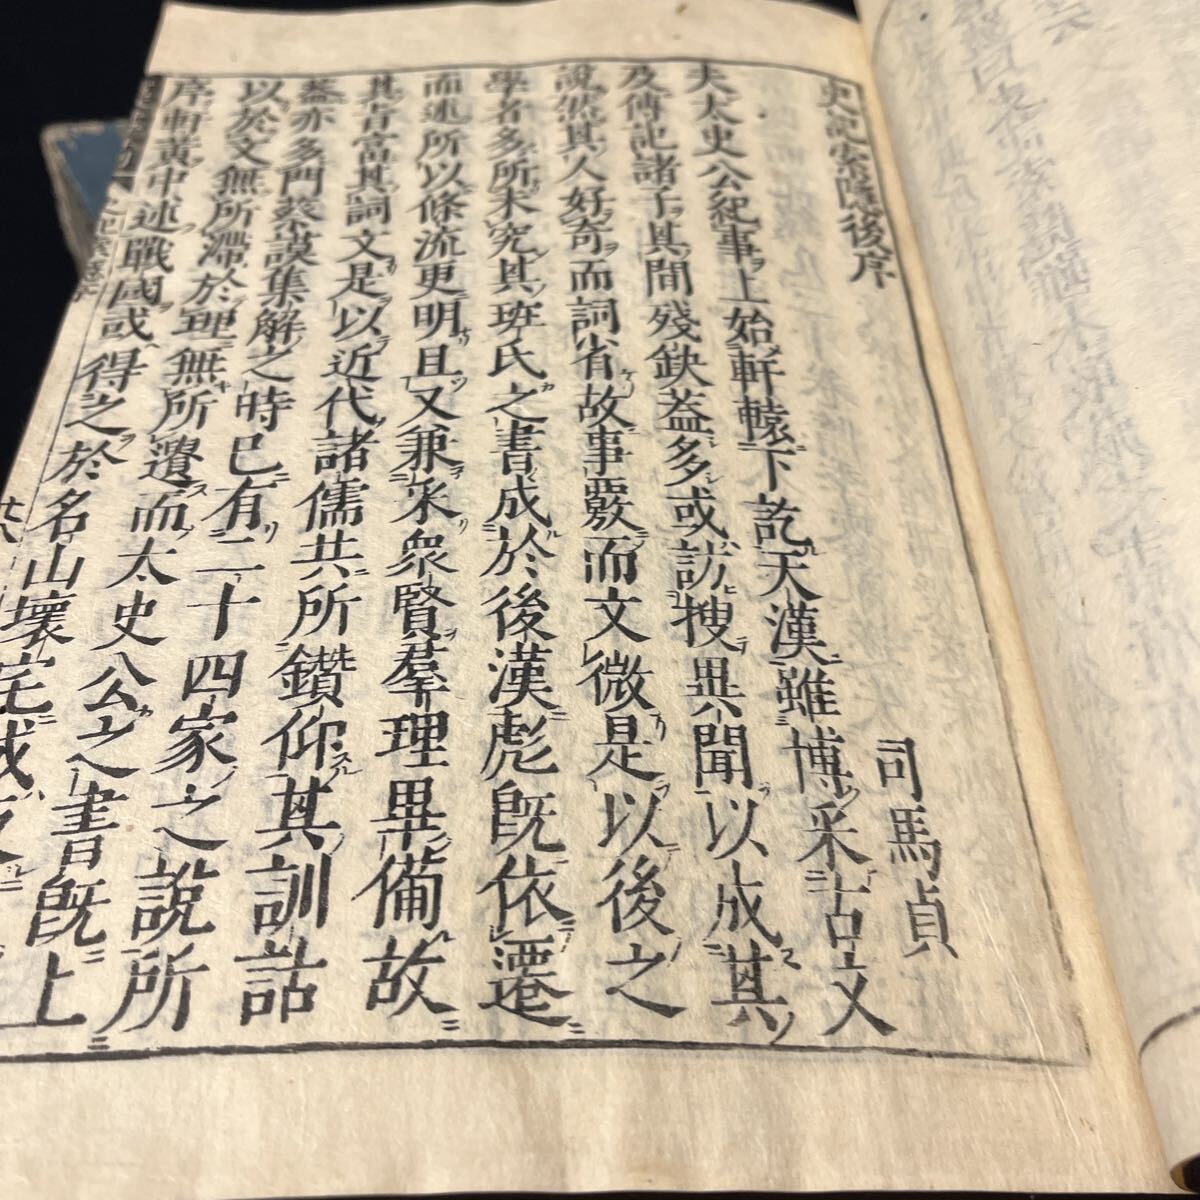 史記索隱後序
司馬貞
夫太史公紀事上始軒轅下訖天漢雖博采古文
及傳記諸子其間殘缺蓋多或訪搜異聞以成其
說然其人好奇而詞省故事覈而文微是以後之
學者多所未究其班氏之書成於後漢彪既依遷
而述所以條流更明且又兼采衆賢羣理畢備故
其旨富其詞文是以近代諸儒共所鑽仰其訓詁
蓋亦多門蔡謨集解之時已有二十四家之說所
以於文無所滯於理無所遺而太史公之書既上
序軒黃中述戰國或得之於名山壞宅或